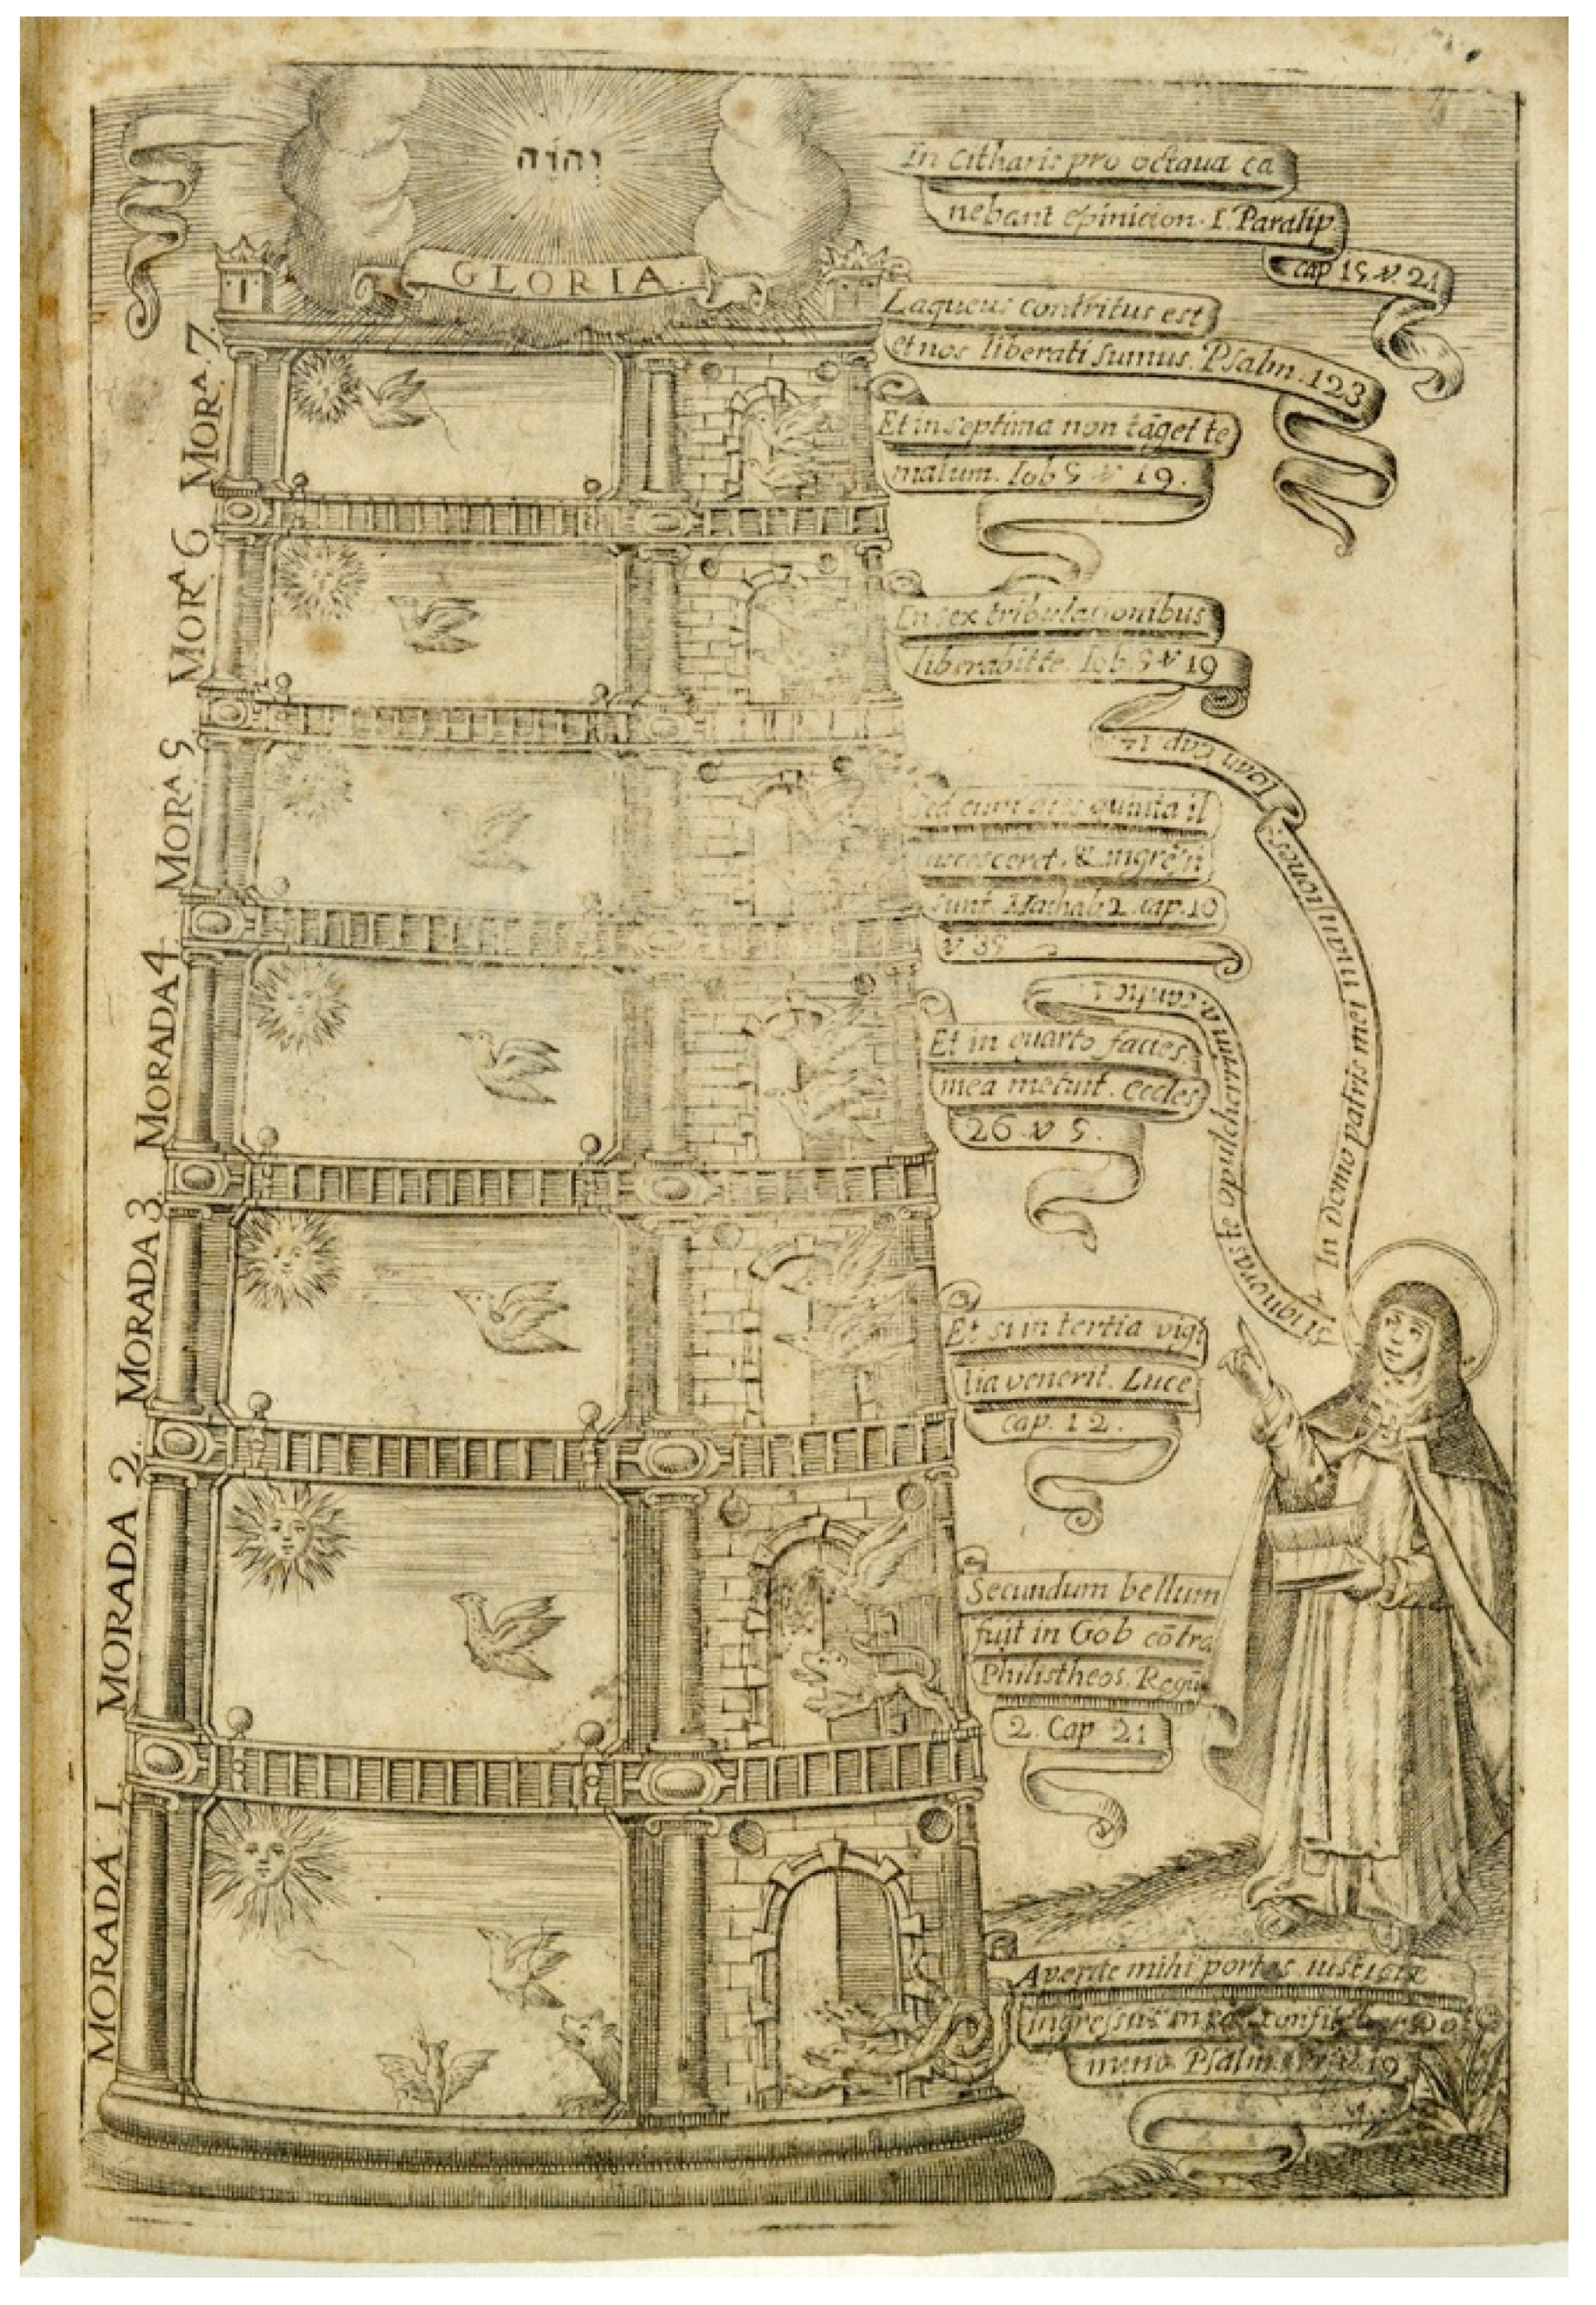 יהוה
GLORIA.
In Citharis pro octaua ca
nebant epinicion. I. Paralip.
cap 15 ꝟ. 21
Laqueus contritus est
et nos liberati sumus. Psalm. 123
MORA. 7.
Et in septima non tãget te
malum. Iob 5 ꝟ 19.
MORA 6
In sex tribulationibus
liberabit te. Iob. 5 ꝟ 19
MORA 5
Sed cum quinta il
ingrẽsi
sunt Machab 2 cap. 10
ꝟ 35
MORADA 4
Et in quarto facies
mea metuit. eccles
26 ꝟ 5.
MORADA 3
Et si in tertia vigi
lia venerit. Luce
cap. 12.
MORADA 2.
Secundum bellum
fuit in Gob cõtra
Philistheos. Regũ
2. Cap 21
MORADA 1.
In Domo patris mei mansiones
Ioan Cap 14.
Si ignoras te o pulcherrima cantic 1.
Aperite mihi portas iusticiæ
ingressus in eas confitebor Do
mino Psalm. ꝟ. 19